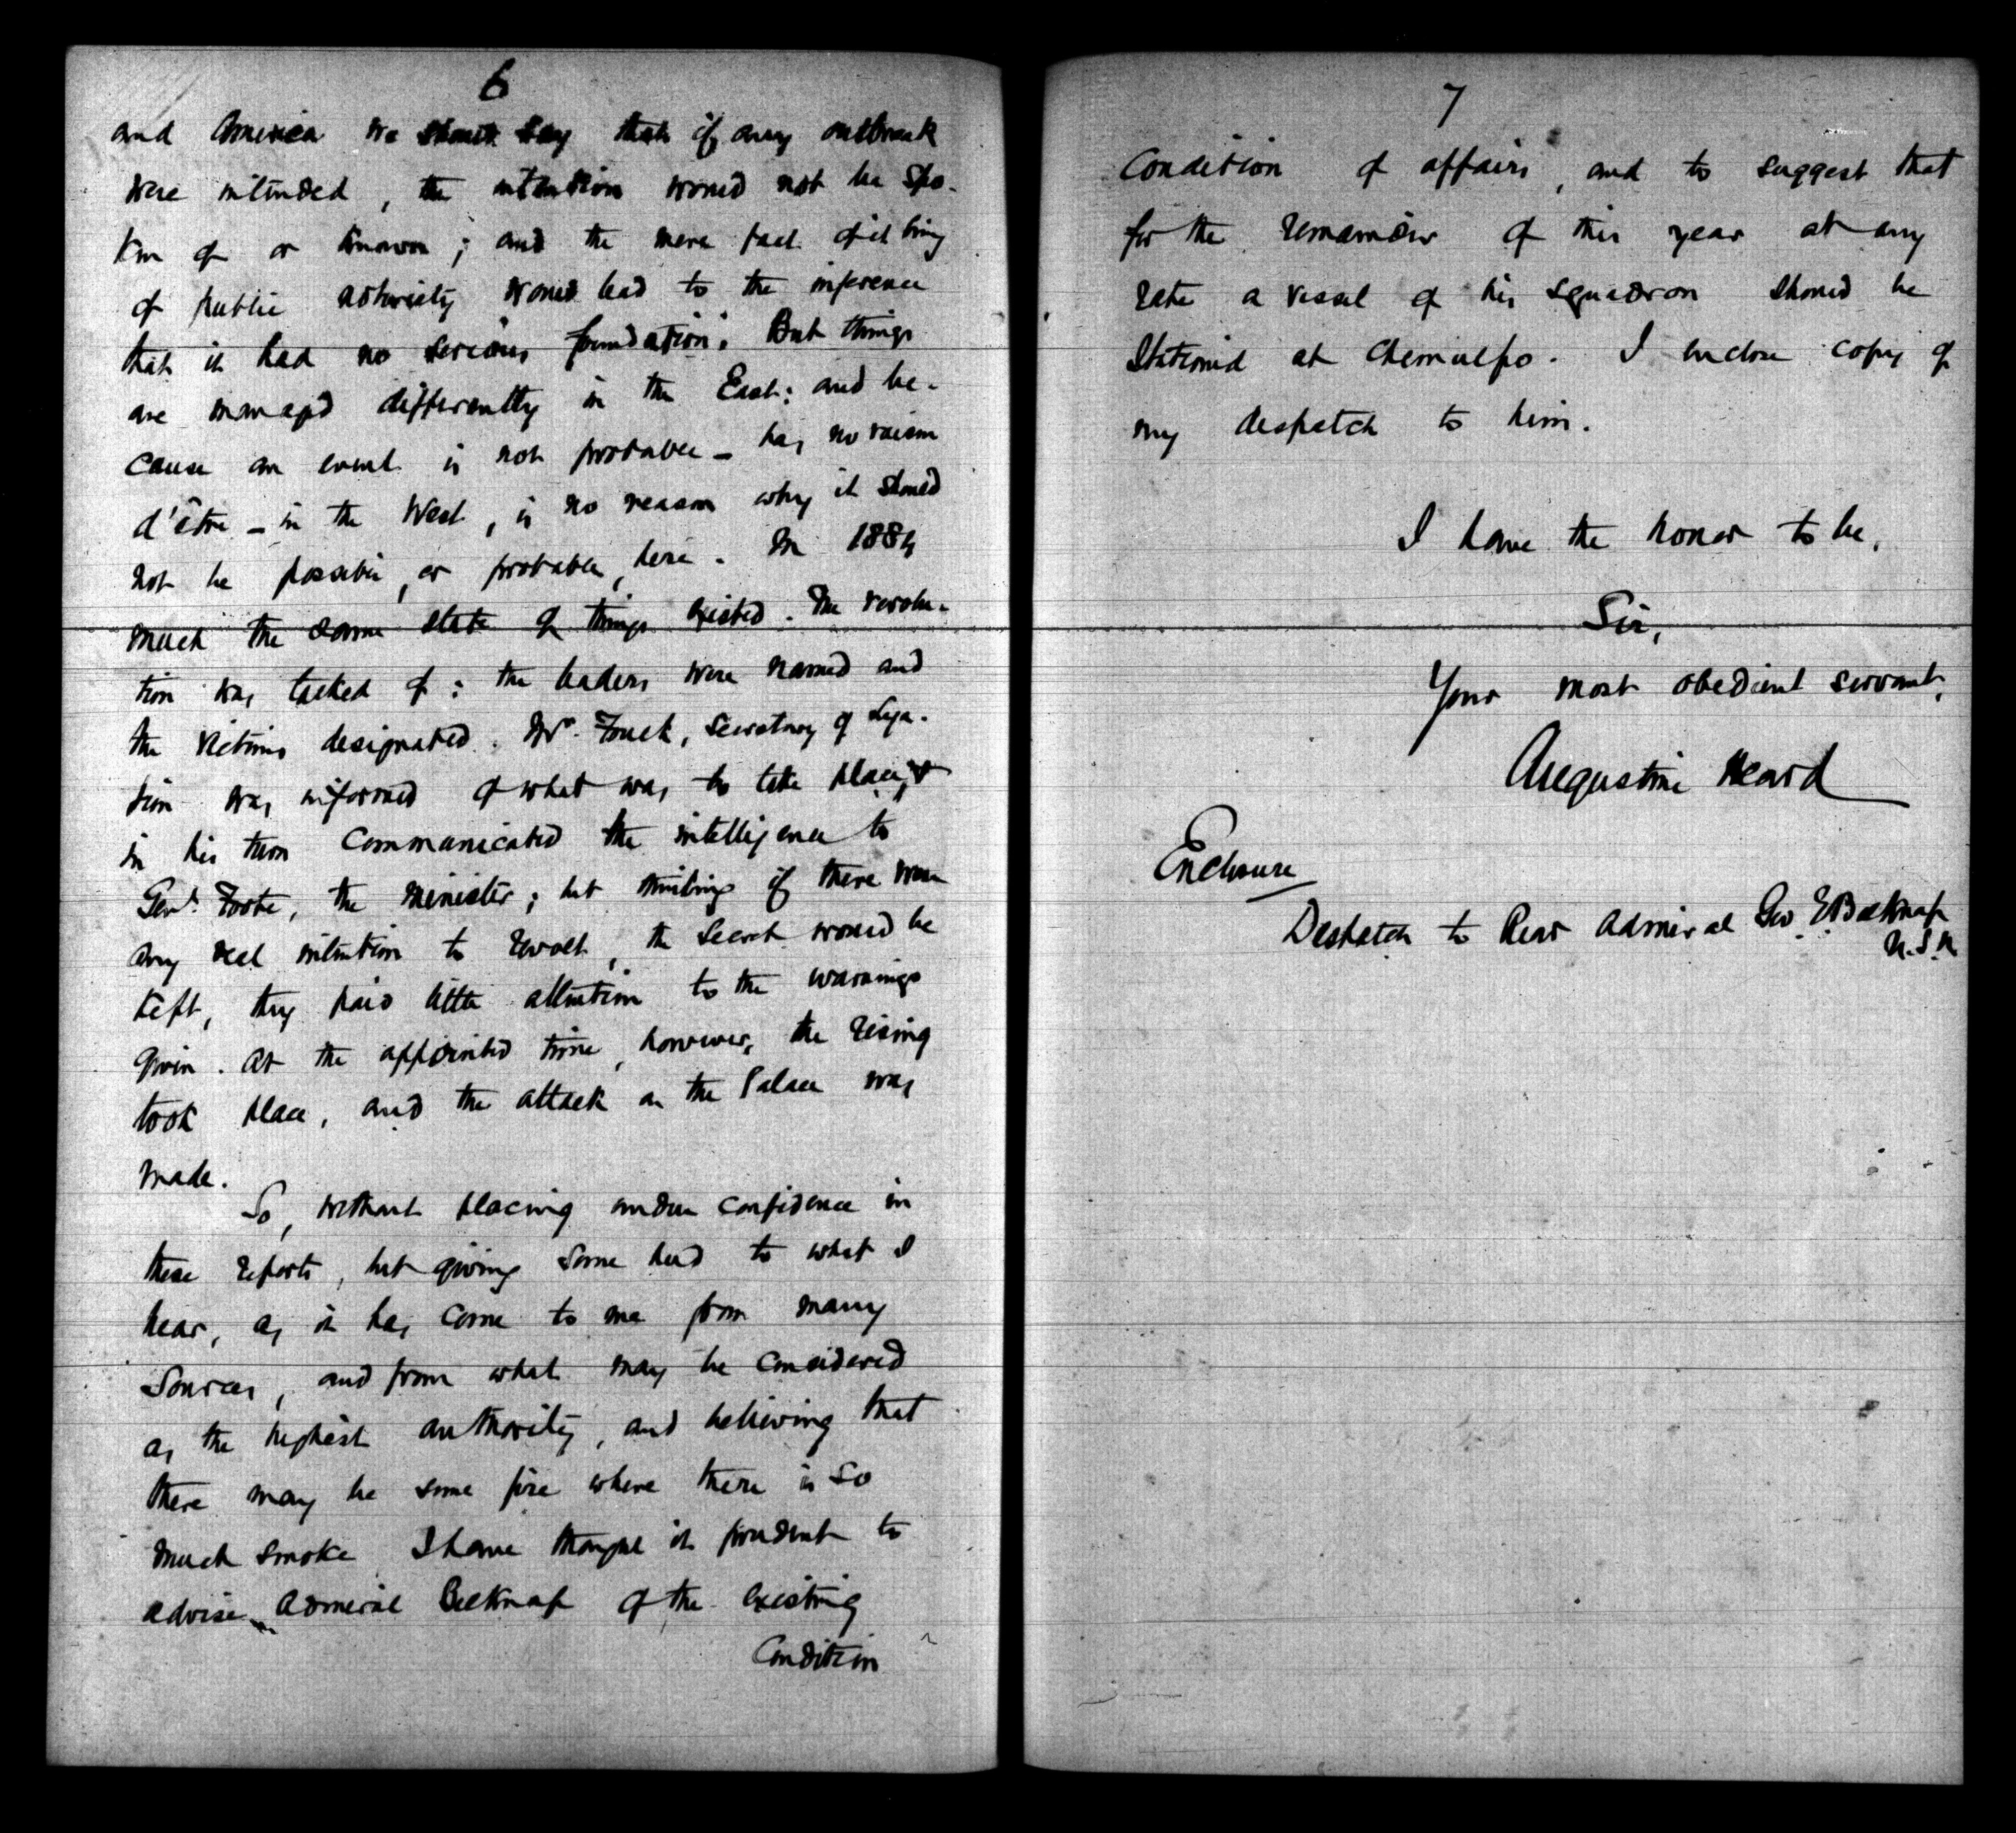 6
and America we should say that if any outbreak
were intended, the intention would not be spo-
ken of or known; and the mere fact of it being
of public notoriety would lead to the inference
that it had no serious foundation. But things
are managed differently in the East; and be-
cause an event is not probable - has no raison
d'être - in the West, is no reason why it should
not be possible, or probable, here. In 1884
much the same state of things existed. The revolu-
tion was talked of: the leaders were named and
the victims designated. Mr. Fouck, Secretary of Lega-
tion was informed of what was to take place, &
in his turn communicated the intelligence to
Genl. Foote, the Minister; but thinking if there were
any real intention to revolt, the secret would be
kept, they paid little attention to the warnings
given. At the appointed time, however, the rising
took place, and the attack on the Palace was
made.
So, without placing undue confidence in
these reports, but giving some heed to what I
hear, as it has come to me from many
sources, and from what may be considered
as the highest authority, and believing that
there may be some fire where there is so
much smoke I have thought it prudent to
advise Admiral Belknap of the existing
Condition
7
Condition of affairs, and to suggest that
for the remainder of this year at any
rate a vessel of his squadron should be
stationed at Chemulpo. I enclose copy of
my despatch to him.
I have the honor to be,
Sir,
Your most obedient servant,
Augustine Heard
Enclosure
Despatch to Rear Admiral Geo. E. Belknap
U.S.N